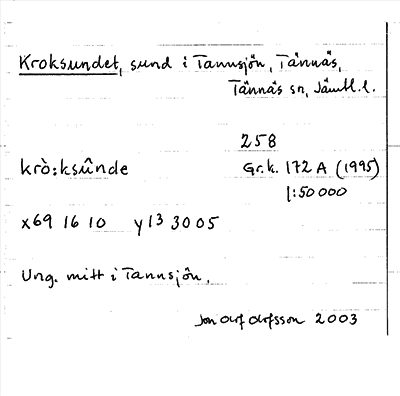 Kroksundet, sund i Tannsjön, Tännäs,
Tännäs sn, Jämtl. l.
258
krò:ksûnde Gr.k. 172 A (1995)
1:50 000
x69 16 10 y13 30 05
Ung. mitt i Tannsjön.
Jon Olof Olofsson 2003